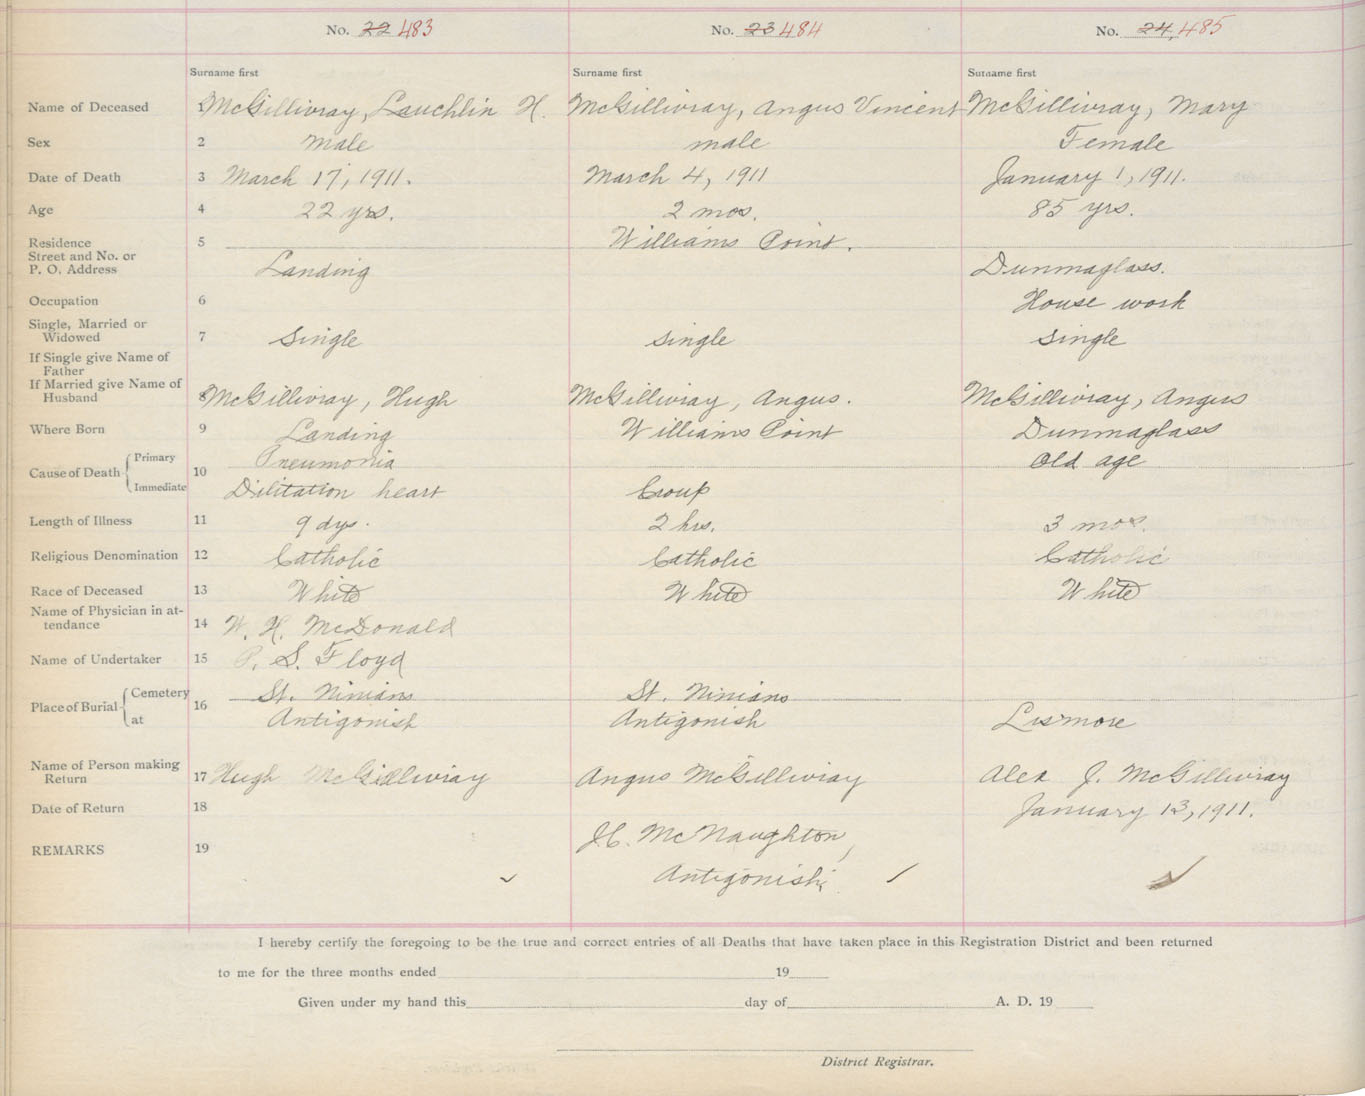 No. 22 483 No. 23 484 No. 24, 485
Surname first Surname first Surname first
Name of Deceased 1 McGillivray, Lauchlin H. McGillivray, Angus Vincent McGillivray, Mary
Sex 2 male male Female
Date of Death 3 March 17, 1911. March 4, 1911 January 1, 1911.
Age 4 22 yrs. 2 mos. 85 yrs.
Residence 5 Williams Point.
Street and No. or
P. O. Address Landing Dunmaglass.
Occupation 6 House work
Single, Married or
Widowed 7 Single single single
If Single give Name of
Father
If Married give Name of
Husband 8 McGillivray, Hugh McGillivray, Angus. McGillivray, Angus
Where Born 9 Landing Williams Point Dunmaglass
Cause of Death 10 Primary Pneumonia Old age
Immediate Dilitation heart Croup
Length of Illness 11 9 dys. 2 hrs. 3 mos.
Religious Denomination 12 Catholic Catholic Catholic
Race of Deceased 13 White White White
Name of Physician in at-
tendance 14 W. H. McDonald
Name of Undertaker 15 P. S. Floyd
Place of Burial 16 Cemetery St. Ninians St. Ninians
at Antigonish Antigonish Lismore
Name of Person making
Return 17 Hugh McGillivray Angus McGillivray Alex J. McGillivray
Date of Return 18 January 13, 1911.
REMARKS 19 J.C. McNaughton,
Antigonish
I hereby certify the foregoing to be the true and correct entries of all Deaths that have taken place in this Registration District and been returned
to me for the three months ended 19
Given under my hand this day of A. D. 19
District Registrar.